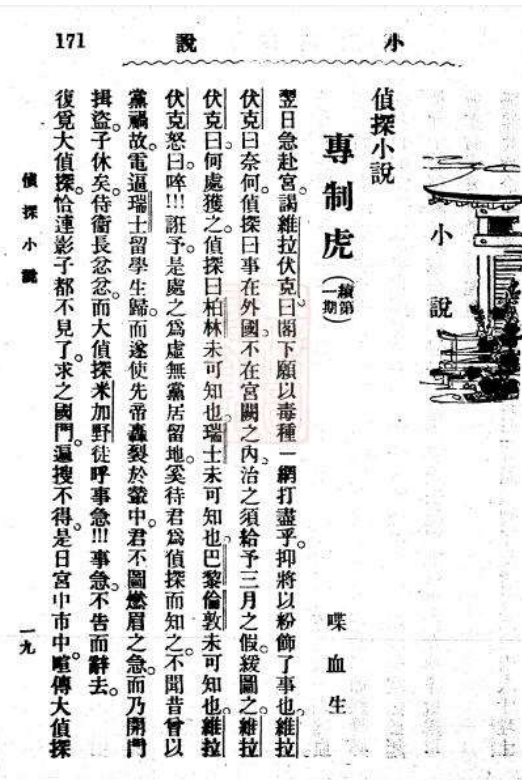 171
小說
小說
偵探小說
專制虎（續第一期）
喋血生
翌日急赴宮謁維拉伏克曰閣下願以毒種一網打盡乎。抑將以粉飾了事也。維拉
伏克曰奈何。偵探曰事在外國。不在宮闕之內。治之須給予三月之假。緩圖之。維拉
伏克曰。何處獲之。偵探曰柏林未可知也。瑞士未可知也。巴黎倫敦未可知也。維拉
伏克怒曰。啐!!!誑予。是處之爲虛無黨居留地。奚待君爲偵探而知之。不聞昔曾以
黨禍故。電逼瑞士留學生歸。而遂使先帝轟裂於輦中。君不圖燃眉之急。而乃開門
揖盜。子休矣。侍衞長忿忿。而大偵探米加野徒呼事急!!!事急。不告而辭去。
復覓大偵探。恰連影子都不見了。求之國門。遍搜不得。是日宮中市中。喧傳大偵探
偵探小說
一九